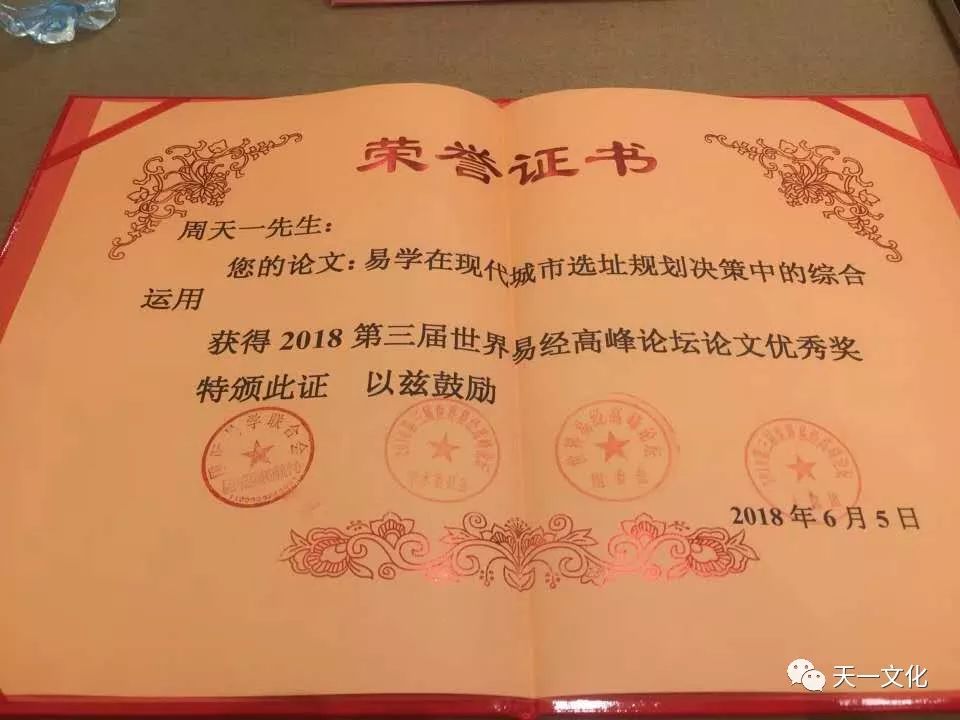 荣誉证书
周天一先生：
您的论文：易学在现代城市选址规划决策中的综合
运用
获得2018第三届世界易经高峰论坛论文优秀奖
特颁此证 以兹鼓励
学联合会
世界易经高峰论坛
组委会
2018年6月5日
天一文化